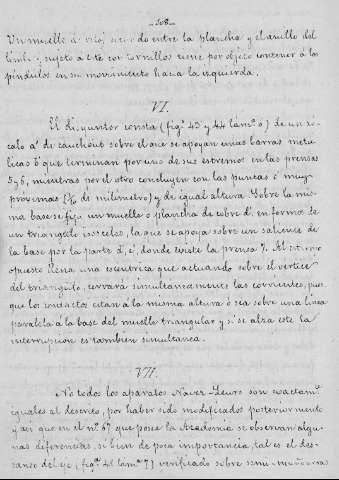 -308-
Un muelle á reloj situado entre la plancha y el anillo del
limbo y sujeto á este con tornillos tiene por objeto contener á los
péndulos en su movimiento hacia la izquierda.
VI.
El disyuntor consta (figs 43 y 44 lama 6) de un zó-
calo a' de cauchout sobre el que se apoyan unas barras metá-
licas b' que terminan por uno de sus estremos en las prensas
5 y 6, mientras por el otro concluyen con las puntas c' muy
próximas de milímetro) y de igual altura. Sobre la mis-
ma base se fija un muelle o plancha de cobre d' en forma de
un triangulo isosceles, la que se apoya sobre un saliente de
la base por la parte d', e', donde existe la prensa 7. Al estremo
opuesto lleva una escentrica que actuando sobre el vértice
del triangulo, cerrará simultaneamente las corrientes, pues
que los contactos estan á la misma altura ó sea sobre una linea
paralela á la base del muelle triangular y si se alza este la
interrupcion es tambien simultanea.
VII.
No todos los aparatos Naver-Zeurs son exactamte
iguales al descrito, por haber sido modificados posteriormente
y asi que en el no 67 que posee la Academia se observan algu-
nas diferencias, si bien de poca importancia, tal es el des-
canso del eje (figa 45 lama 7) verificado sobre semi-muñoneras